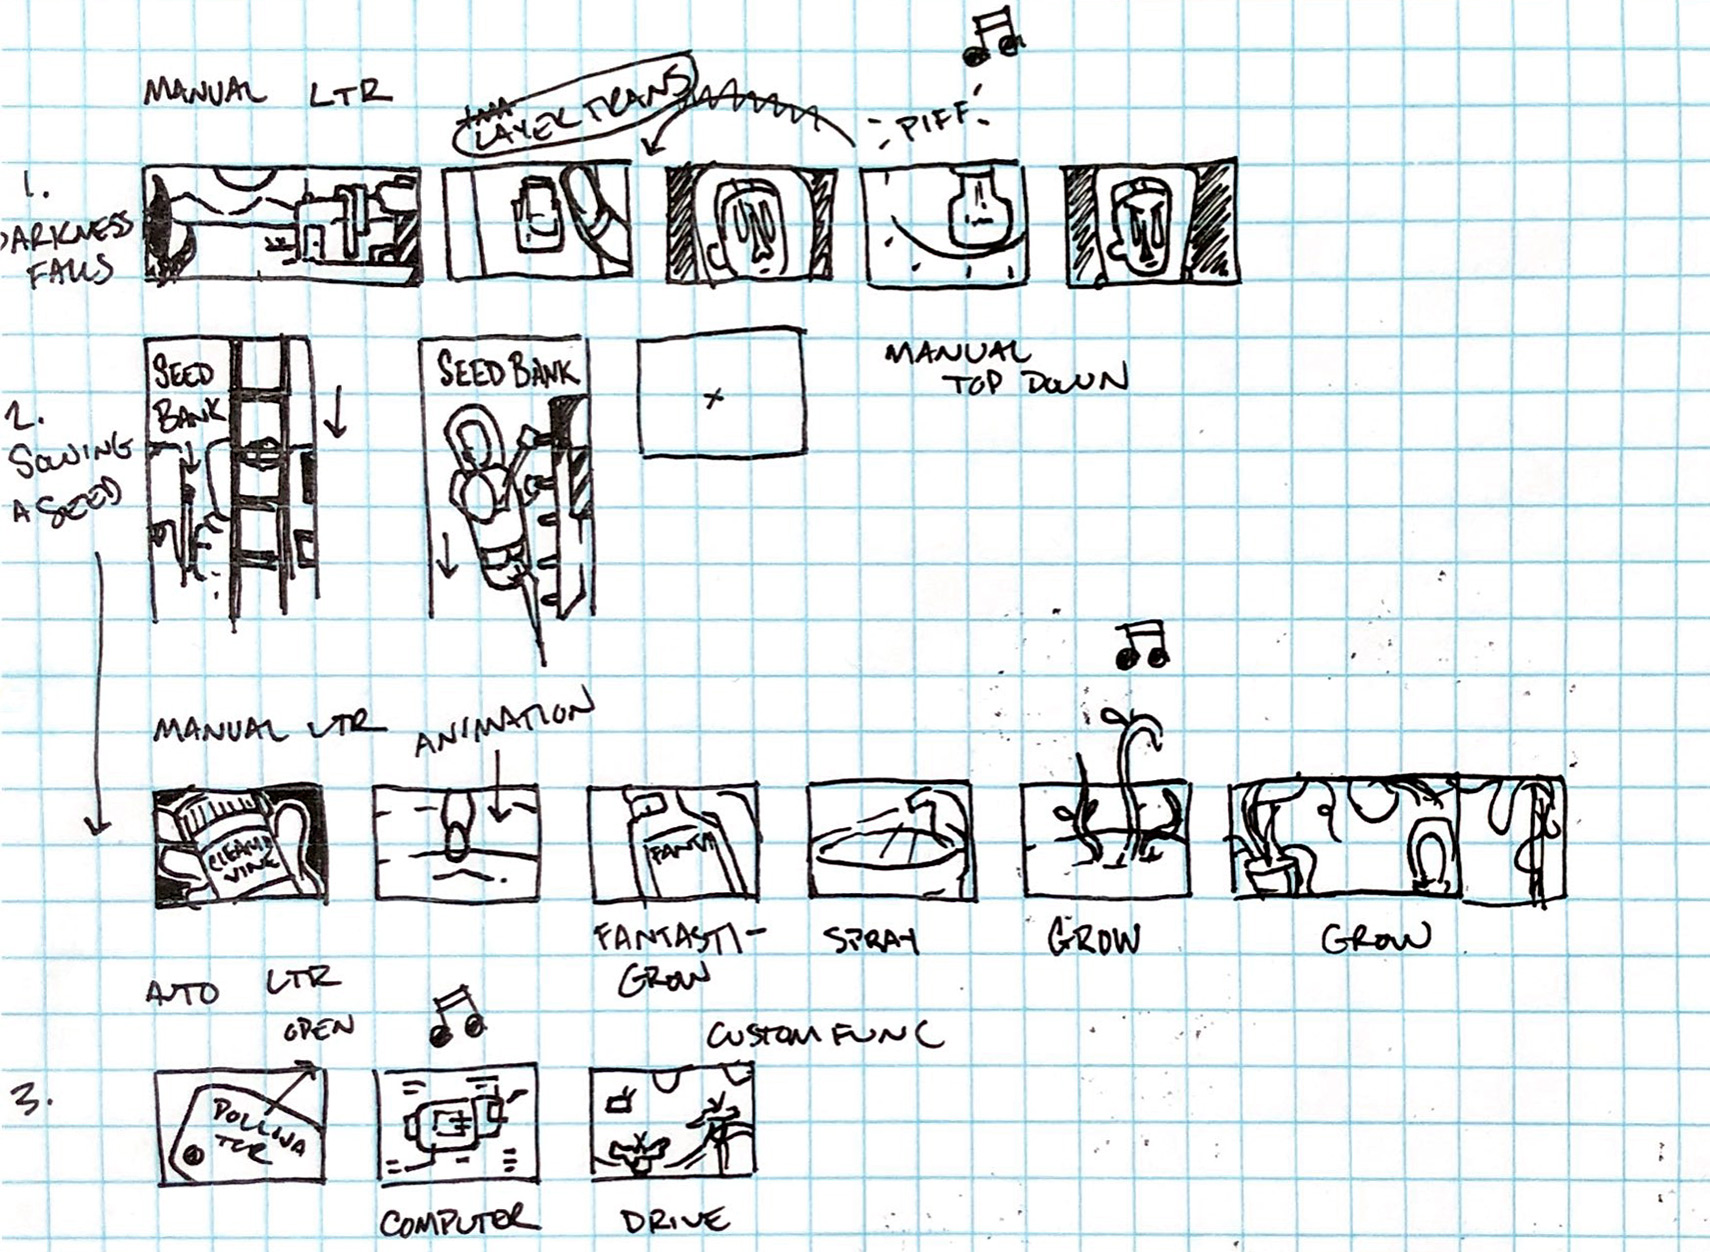 MANUAL LTR
LAYER TRANS
PIFF
1.
DARKNESS
FALLS
SEED
BANK
SEED BANK
MANUAL
TOP DOWN
2.
SOWING
A SEED
MANUAL LTR
ANIMATION
VINE
FANTA
FANTASTI-
GROW
SPRAY
GROW
GROW
AUTO LTR
OPEN
CUSTOM FUNC
3.
POLLINA
TER
COMPUTER
DRIVE